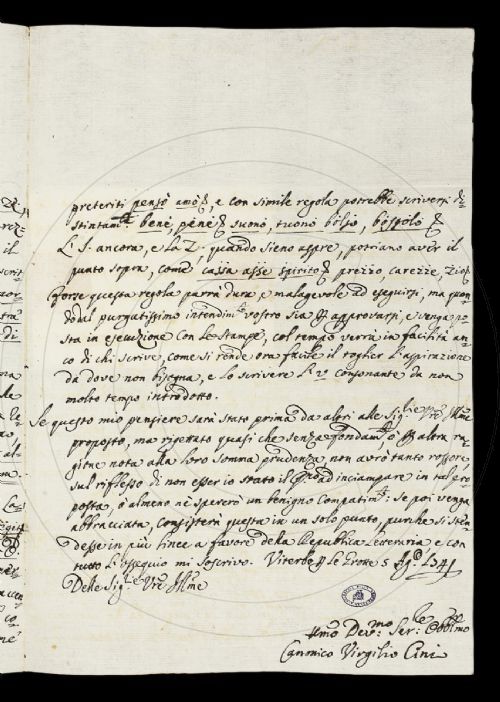 preteriti pensò amò &, e con simile regola potrebbe scriversi di=
stintam.te bene, pène & suono, tuono bòlso, bèspolo &
L'S. ancora, e la Z. quando sieno aspre, potriano aver il
punto sopra, come cassa asse spirito & prezzo, carezze, zio &
Forse questa regola parrà dura e malagevole ad eseguirsi, ma quan
do dal purgatissimo intendim.to vostro sia per approvarsi, e venga po=
sta in esecuzione con le stampe, col tempo verrà in facilità an=
co di chi scrive, come si rende ora facile il toglier l'aspirazione
da dove non bisogna, e lo scrivere l'v consonante da non
molto tempo introdotto.
Se questo mio pensiere sarà stato prima da altri alle Sig.rie V.re Ill.me
proposto, ma rigettato quasi che senza fondam.to ò per altra ra=
gione nota alla loro somma prudenza non avrò tanto rossore,
sul riflesso di non esser io stato il ad inciampare in tal
posta, ò almeno nè spererò un benigno compatim.to: se poi venga
abbracciata, consisterà questa in un solo punto, purche si sten
desse in più linee a favore della Repubblica Letteraria e con
tutto l'ossequio mi soscrivo. Viterbo per le Grotte 5 Ag.o 1741
Delle Sig.rie V.re Ill.me
Um.o Dev.mo Ser.re Obb.mo
Canonico Virgilio Cini